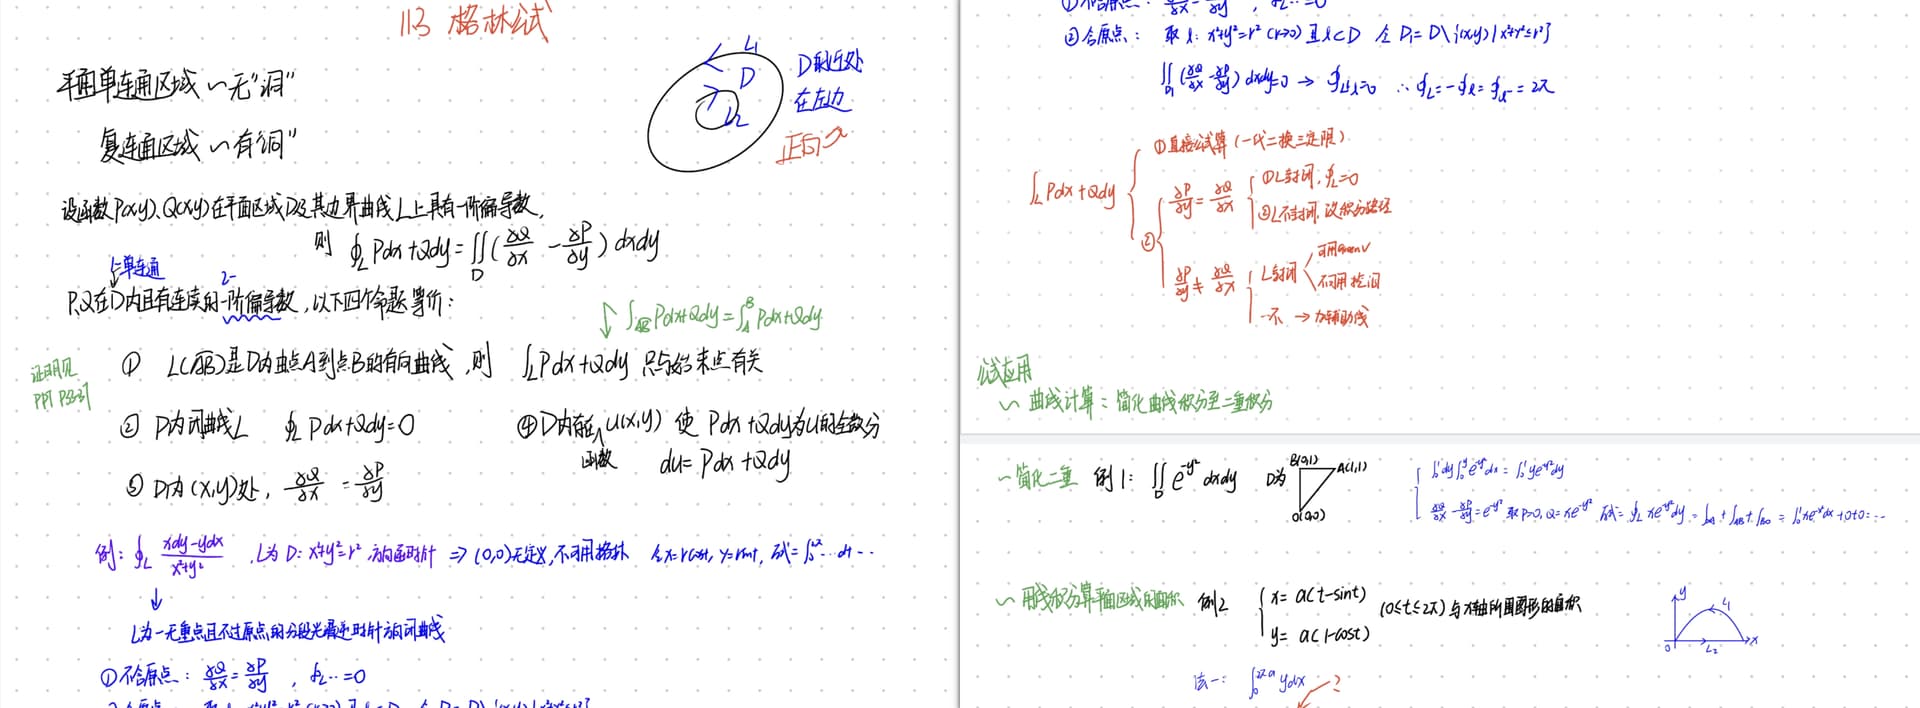 11.3 格林公式
平面单连通区域 ~ 无"洞"
复连通区域 ~ 有"洞"
L₁
D
L₂
D最近处
在左边
正向
设函数P(x,y)、Q(x,y)在平面区域D及其边界曲线L上具有一阶偏导数,
则 ∮_L Pdx+Qdy=∬_D(∂Q/∂x - ∂P/∂y) dxdy
单连通
P,Q在D内且有连续的一阶偏导数, 以下四个命题等价:
∫_AB Pdx+Qdy=∫_A^B Pdx+Qdy
证明见
PPT
① L(AB)是D内由点A到点B的有向曲线, 则 ∫_L Pdx+Qdy 只与始末点有关
② D内闭曲线L ∮_L Pdx+Qdy=0
④ D内存在函数u(x,y) 使 Pdx+Qdy为u的全微分
du=Pdx+Qdy
③ D内(x,y)处, ∂Q/∂x = ∂P/∂y
例: ∮_L (xdy-ydx)/(x²+y²) , L为D: x²+y²=r² 方向逆时针 ⇒ (0,0)无定义,不可用格林 令x=rcost, y=rsint, 原式=∫₀^{2π}…dt…
↓
L为一无重点且不过原点的分段光滑逆时针方向闭曲线
① 不含原点: ∂Q/∂x=∂P/∂y , ∮_L…=0
② 含原点: 取l: x²+y²=r² (r>0) 且l⊂D 令D₁=D\{(x,y)|x²+y²≤r²}
∬_D₁(∂Q/∂x-∂P/∂y)dxdy=0 → ∮_{L+l}=0 ∴∮_L=-∮_l=∮_{l⁻}=2π
∫_L Pdx+Qdy
① 直接公式算(一代二换三定限)
②
∂P/∂y=∂Q/∂x
① L封闭, ∮_L=0
② L不封闭, 改积分路径
∂P/∂y≠∂Q/∂x
L封闭
可用Green√
不可用挖洞
不 → 加辅助线
公式应用
~ 曲线计算: 简化曲线积分至二重积分
~ 简化二重 例1: ∬_D e^{-y²}dxdy D为
B(0,1)
A(1,1)
O(0,0)
∫₀¹dy∫₀^y e^{-y²}dx=∫₀¹ye^{-y²}dy
∂Q/∂x-∂P/∂y=e^{-y²} 取P=0, Q=xe^{-y²} 原式=∮_L xe^{-y²}dy=∫_OA+∫_AB+∫_BO=∫₀¹xe^{-x²}dx+0+0=…
~ 用线积分算平面区域的面积 例2 { x=a(t-sint)
y=a(1-cost)
(0≤t≤2π)与x轴所围图形的面积
y
L₁
0
L₂
x
法一: ∫₀^{2πa} ydx
?